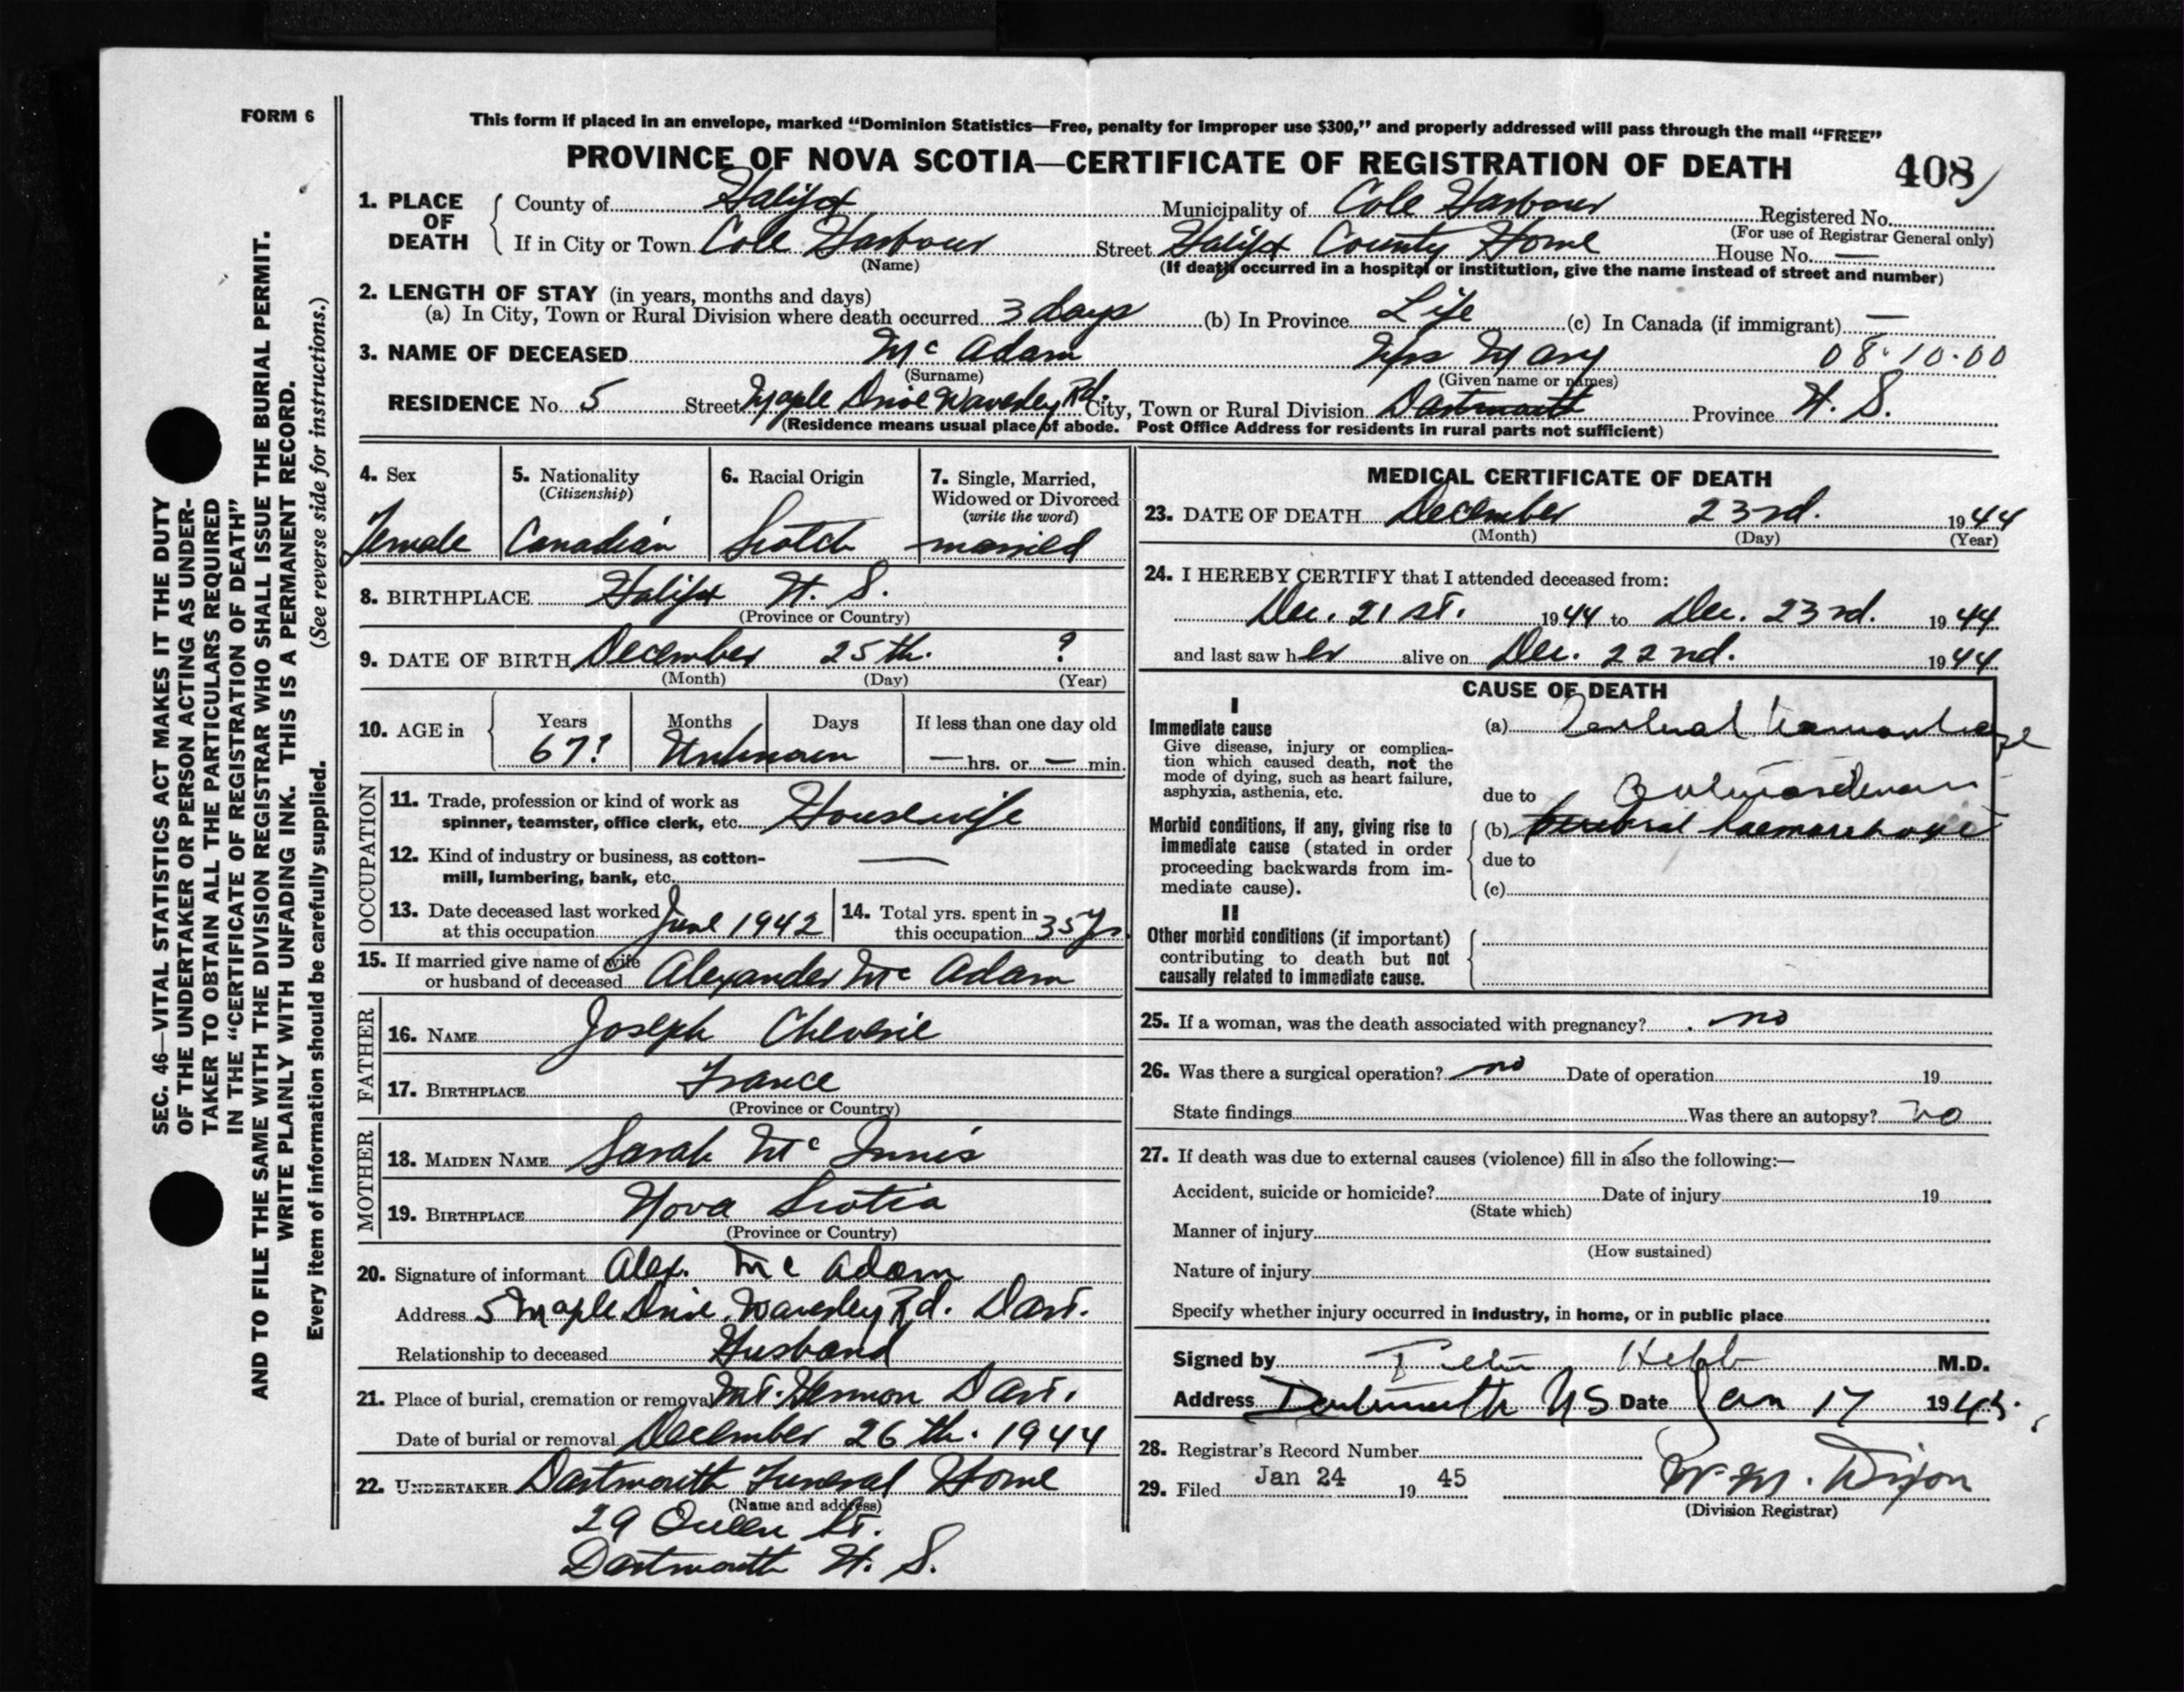 FORM 6
This form if placed in an envelope, marked "Dominion Statistics—Free, penalty for improper use $300," and properly addressed will pass through the mail "FREE"
PROVINCE OF NOVA SCOTIA—CERTIFICATE OF REGISTRATION OF DEATH 408
1. PLACE OF DEATH County of Halifax Municipality of Cole Harbour Registered No.
(For use of Registrar General only)
If in City or Town Cole Harbour Street Halifax County Home House No. —
(Name) (If death occurred in a hospital or institution, give the name instead of street and number)
2. LENGTH OF STAY (in years, months and days)
(a) In City, Town or Rural Division where death occurred 3 days (b) In Province Life (c) In Canada (if immigrant) —
3. NAME OF DECEASED Mc Adam Mrs Mary 08.10.00
(Surname) (Given name or names)
RESIDENCE No. 5 Street Maple Drive Waverley Rd. City, Town or Rural Division Dartmouth Province N. S.
(Residence means usual place of abode. Post Office Address for residents in rural parts not sufficient)
4. Sex Female
5. Nationality (Citizenship) Canadian
6. Racial Origin Scotch
7. Single, Married, Widowed or Divorced (write the word) married
8. BIRTHPLACE Halifax N. S.
(Province or Country)
9. DATE OF BIRTH December 25th. ?
(Month) (Day) (Year)
10. AGE in Years 67? Months Days Unknown If less than one day old — hrs. or — min.
OCCUPATION
11. Trade, profession or kind of work as spinner, teamster, office clerk, etc. Housewife
12. Kind of industry or business, as cotton-mill, lumbering, bank, etc. —
13. Date deceased last worked at this occupation June 1942
14. Total yrs. spent in this occupation 35 yrs.
15. If married give name of wife or husband of deceased Alexander Mc Adam
FATHER
16. NAME Joseph Cheverie
17. BIRTHPLACE France
(Province or Country)
MOTHER
18. MAIDEN NAME Sarah Mc Innis
19. BIRTHPLACE Nova Scotia
(Province or Country)
20. Signature of informant Alex. Mc Adam
Address 5 Maple Drive, Waverley Rd. Dart.
Relationship to deceased Husband
21. Place of burial, cremation or removal Mt. Hermon Dart.
Date of burial or removal December 26th. 1944
22. UNDERTAKER Dartmouth Funeral Home
(Name and address)
29 Queen St.
Dartmouth N. S.
MEDICAL CERTIFICATE OF DEATH
23. DATE OF DEATH December 23rd. 1944
(Month) (Day) (Year)
24. I HEREBY CERTIFY that I attended deceased from:
Dec. 21st. 1944 to Dec. 23rd. 1944
and last saw her alive on Dec. 22nd. 1944
CAUSE OF DEATH
I
Immediate cause
Give disease, injury or complication which caused death, not the mode of dying, such as heart failure, asphyxia, asthenia, etc.
(a) Cerebral haemorrhage
due to
Morbid conditions, if any, giving rise to immediate cause (stated in order proceeding backwards from immediate cause).
(b) Cerebral haemorrhage
due to
(c)
II
Other morbid conditions (if important) contributing to death but not causally related to immediate cause.
25. If a woman, was the death associated with pregnancy? no
26. Was there a surgical operation? no Date of operation 19
State findings Was there an autopsy? no
27. If death was due to external causes (violence) fill in also the following:—
Accident, suicide or homicide? Date of injury 19
(State which)
Manner of injury
(How sustained)
Nature of injury
Specify whether injury occurred in industry, in home, or in public place
Signed by Hebb M.D.
Address Dartmouth NS Date Jan 17 1945.
28. Registrar's Record Number
29. Filed Jan 24 19 45 W. M. Dixon
(Division Registrar)
SEC. 46—VITAL STATISTICS ACT MAKES IT THE DUTY
OF THE UNDERTAKER OR PERSON ACTING AS UNDER-
TAKER TO OBTAIN ALL THE PARTICULARS REQUIRED
IN THE "CERTIFICATE OF REGISTRATION OF DEATH"
AND TO FILE THE SAME WITH THE DIVISION REGISTRAR WHO SHALL ISSUE THE BURIAL PERMIT.
WRITE PLAINLY WITH UNFADING INK. THIS IS A PERMANENT RECORD.
Every item of information should be carefully supplied. (See reverse side for instructions.)